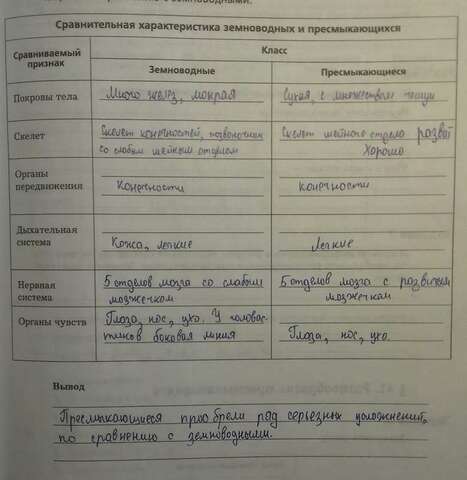 с земноводными.
Сравнительная характеристика земноводных и пресмыкающихся
Сравниваемый признак
Класс
Земноводные
Пресмыкающиеся
Покровы тела
Много желез, мокрая
Сухая, с множеством чешуи
Скелет
Скелет конечностей, позвоночник
со слабым шейным отделом
Скелет шейного отдела развит
Хорошо
Органы
передвижения
Конечности
конечности
Дыхательная
система
Кожа, легкие
Легкие
Нервная
система
5 отделов мозга со слабым
мозжечком
5 отделов мозга с развитым
мозжечком
Органы чувств
Глаза, нос, ухо. У головас-
тиков боковая линия
Глаза, нос, ухо.
Вывод
Пресмыкающиеся приобрели ряд серьезных усложнений,
по сравнению с земноводными.